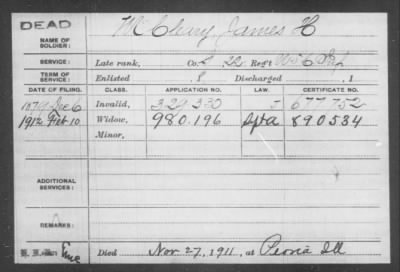 DEAD
NAME OF SOLDIER: McCleary, James H
SERVICE: Late rank, Co. 22 Reg't Inf
TERM OF SERVICE: Enlisted , 1 Discharged , 1
DATE OF FILING. CLASS. APPLICATION NO. LAW. CERTIFICATE NO.
1879 Dec 6 Invalid, 329 330 677 752
1912 Feb 10 Widow, 980.196 890534
Minor,
ADDITIONAL SERVICES:
REMARKS:
Died Nov 27, 1911, at Peoria Ill